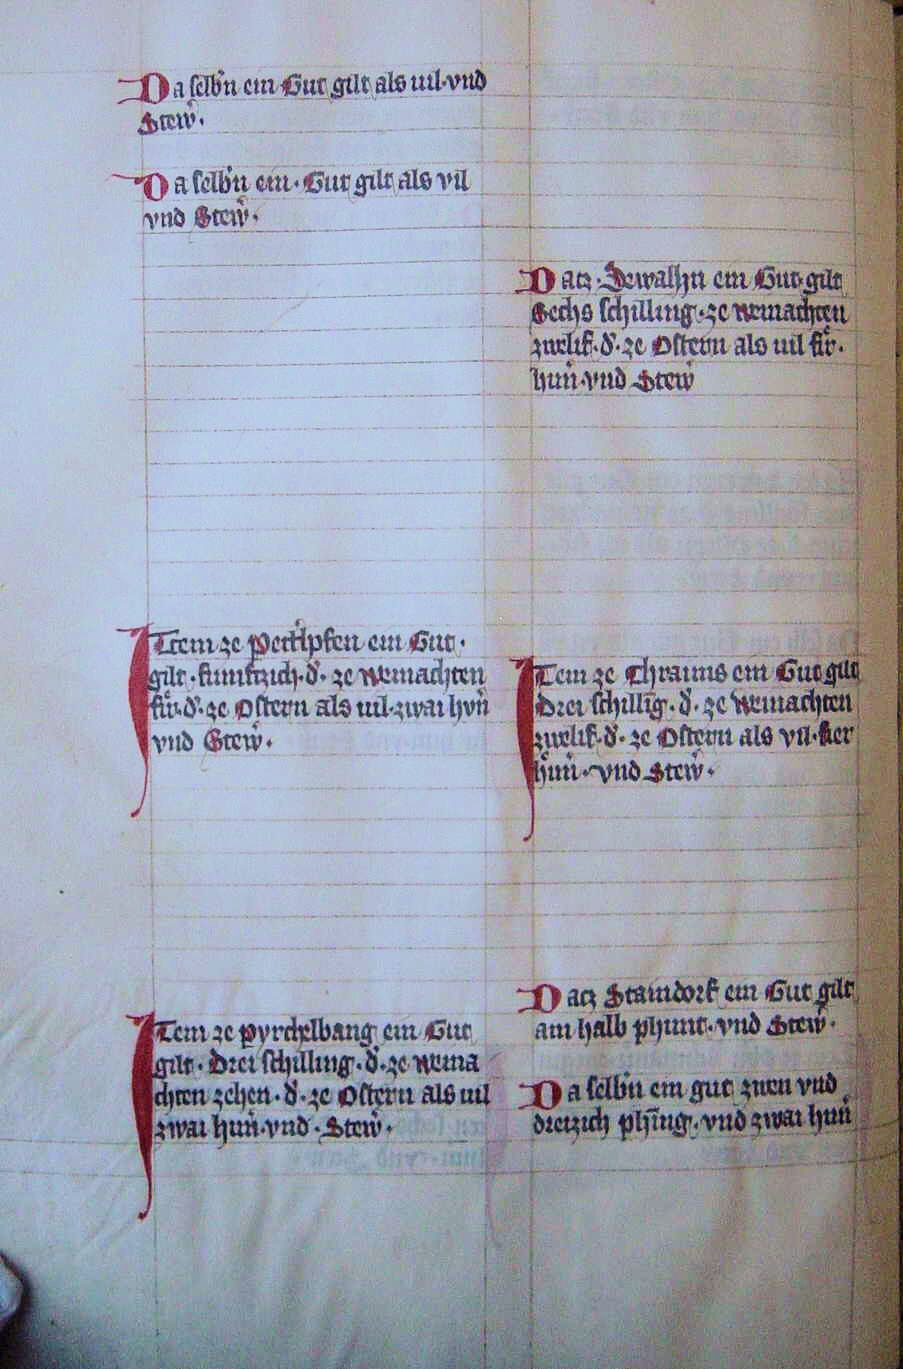 Da selbn ein Gut gilt als uil·vnd
Stew̉·
Da selbn ein· Gut gilt als vil
vnd Stew̉·
Item ze ein Gut·
gilt· funftzich·d̉· ze weinachten
fir·d̉·ze Ostern als uil·zwai hvn̉
vnd Stew̉·
Item ze pyrchelbang ein Gut
gilt· Drei schilling·d̉·ze weina
chten zehen·d̉·ze Ostern als uil
zwai hun̉·vnd·Stew̉·
Datz· Jewalhn ein Gut·gilt
Sechs schilling·ze weinachten
zwelif·d̉·ze Ostern als uil fir·
hun̉·vnd Stew̉
Item ze Thraims ein Gut gilt
Drei schillīg·d̉·ze weinachten
zwelif·d̉·ze Ostern als vil·fier
hun̉·vnd Stew̉·
Datz Staindorf ein Gut gilt
am halb phunt·vnd Stew̉·
Da selbn ein gut zwen vnd
dreizich phīng·vnd zwai hun̉